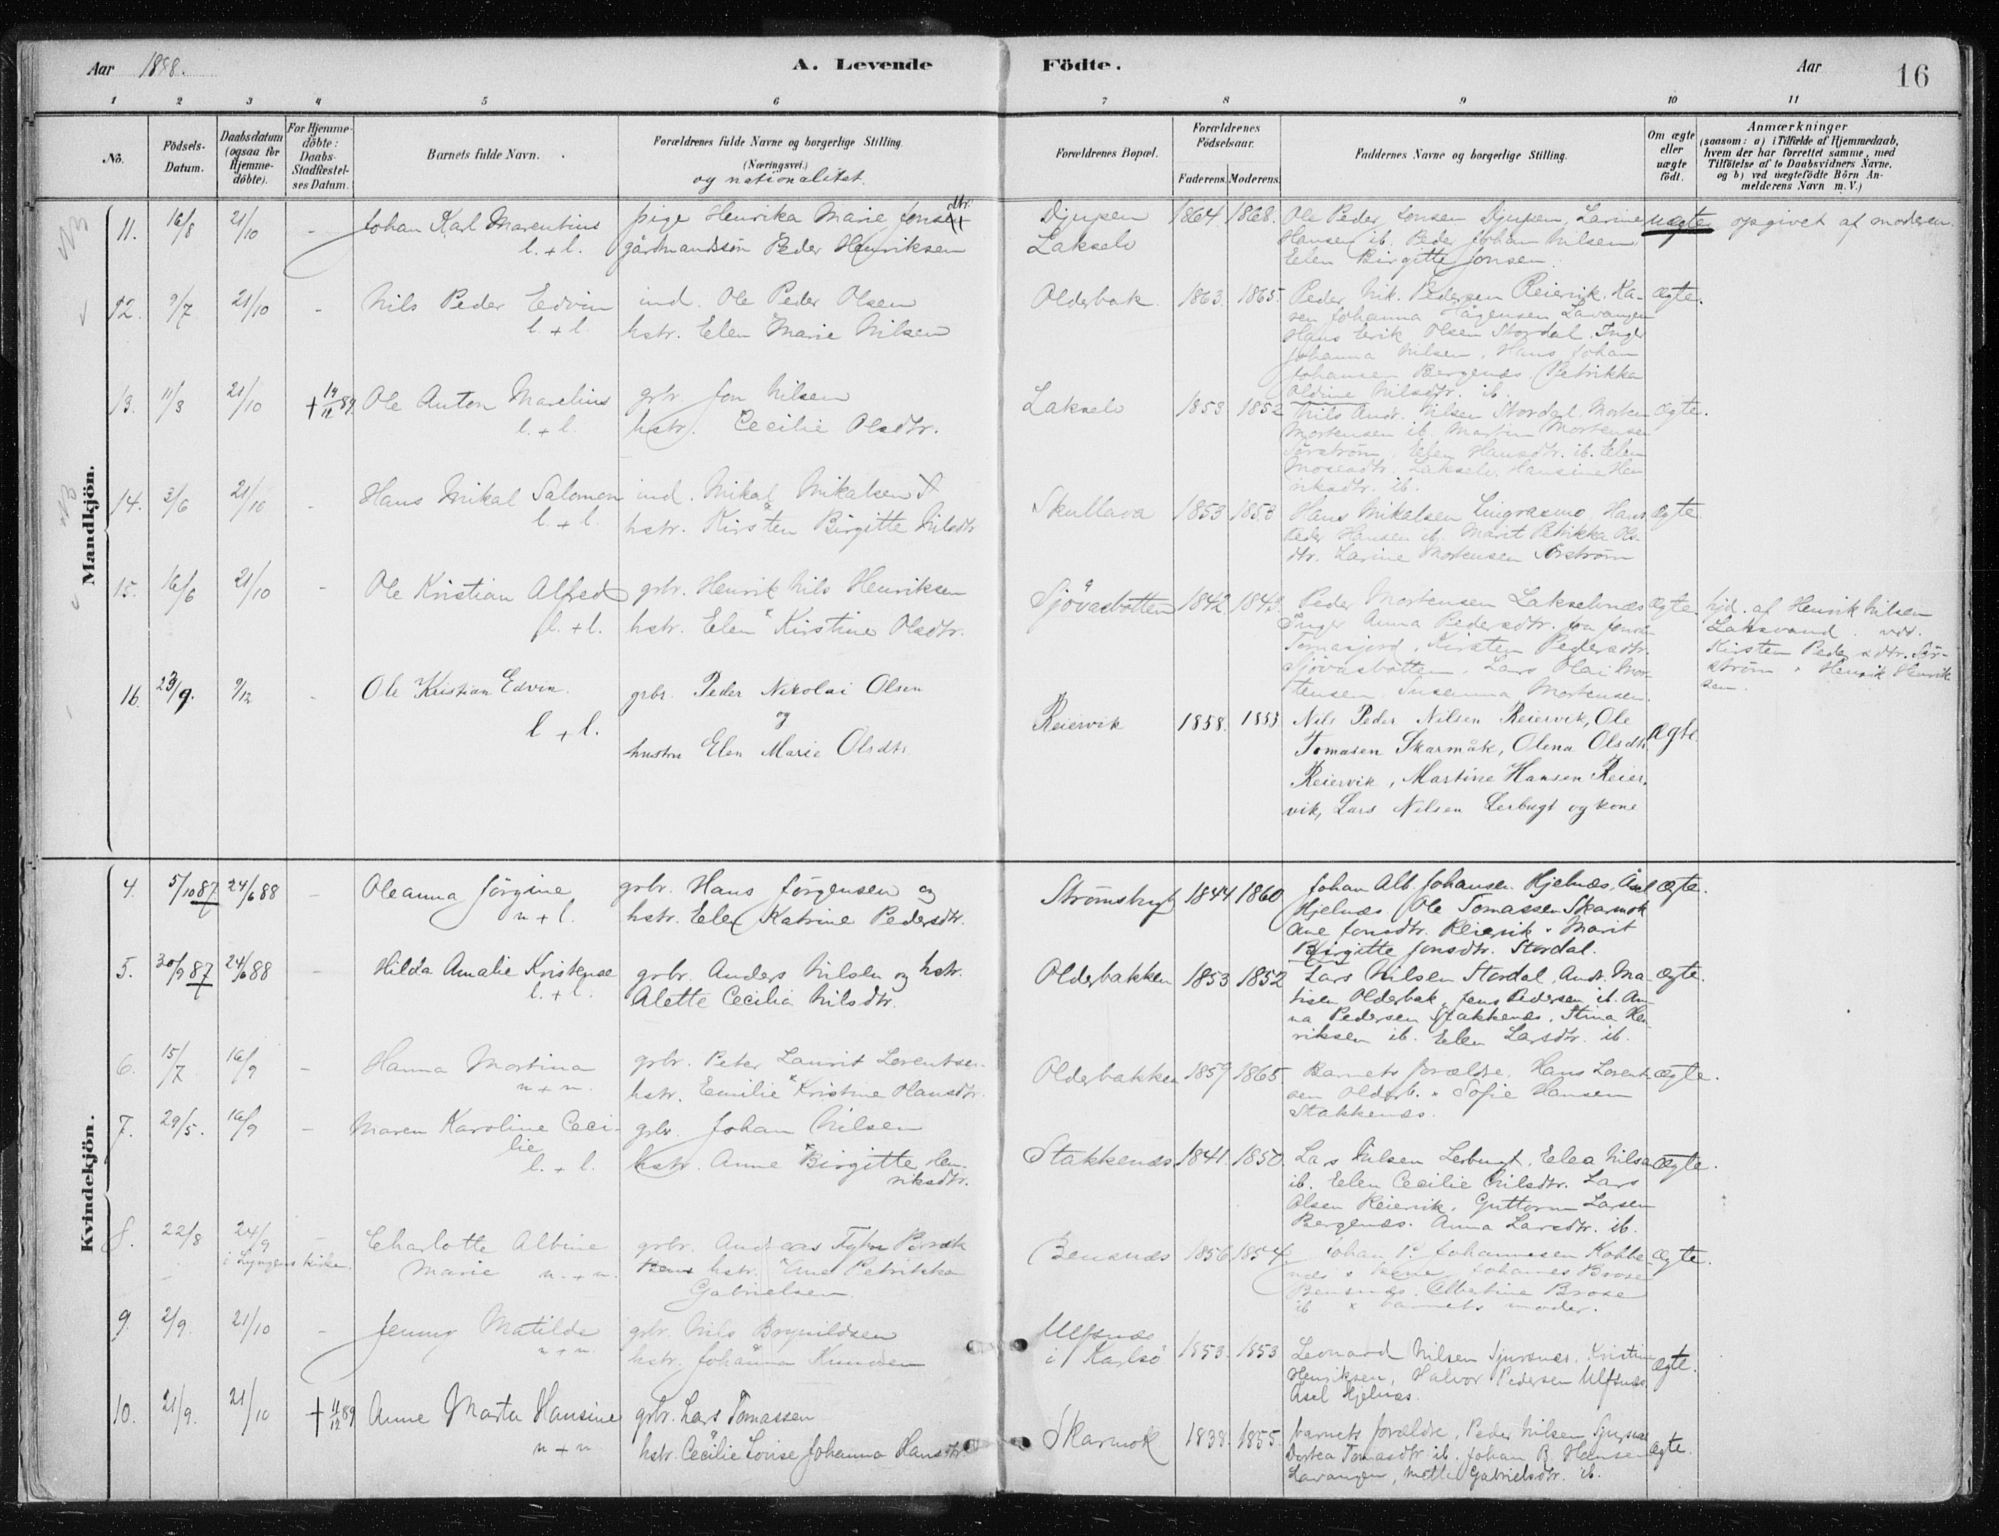 Aar 1888. A. Levende Födte. Aar 16
1 2 3 4 5 6 7 8 9 10 11
No. Födsels-Datum. Daabsdatum (ogsaa for Hjemme-döbte). For Hjemme-döbte: Daabs-Stadfæstel-ses Datum. Barnets fulde Navn. Forældrenes fulde Navne og borgerlige Stilling (Næringsvei.) og nationalitet. Forældrenes Bopæl. Forældrenes Födselsaar. Faderens. Moderens. Faddernes Navne og borgerlige Stilling. Om ægte eller uægte födt. Anmærkninger (saasom: a) i Tilfælde af Hjemmedaab, hvem der har forrettet samme, med Tilföielse af to Daabsvidners Navne, og b) ved uægtefödte Börn An-melderens Navn m. V.)
Mandkjön.
11. 16/8 21/10 - Johan Karl Marentius pige Henrika Marie Jonsen dtr. Djupen 1864. 1868. Ole Peder Jonsen Djupen, Larine uægte opgivet af moderen.
l. + l. gårdmandssön Peder Henriksen Lakselv Hansen ib. Peder Johan Nilsen
Elen Birgitte Jonsen.
12. 9/7 21/10 - Nils Peder Edvin ind. Ole Peder Olsen Olderbak 1863. 1865. Peder Nik. Pedersen Reiervik. Ka- Ægte.
l. + l. hstr. Elen Marie Nilsen sen Johanna Hågensen Lavangen
Hans Erik Olsen Stordal. Inger
Johanna Nilsen, Hans Johan
Johansen Bergenæs. Petrikka
Oldine Nilsdtr. ib.
13. 11/3 21/10 + 14/12 89 Ole Anton Marelius grbr. Jon Nilsen Lakselv 1853. 1852 Nils Andr. Nilsen Stordal. Morten Ægte.
l. + l. hstr. Cecilie Olsdtr. Mortensen ib. Martin Mortensen
Sörström. Elen Hansdtr. ib. Elen
Moseadtr. Lakselv. Hansine Hen
riksdtr. ib.
14. 3/6 21/10 - Hans Mikal Salomon ind. Mikal Mikalsen Skullava 1853 1853 Hans Mikalsen Lingrasmo, Hans Ægte
l. + l. hstr. Kirsten Birgitte Nilsdtr Peder Hansen ib. Marit Petrikka Ols
dtr. Larine Mortensen Sörström
15. 16/6 21/10 - Ole Kristian Alfred grbr. Henrik Nils Henriksen Sjövasbotten 1842 1843. Peder Mortensen Lakselvnæs Ægte. hjd. af Henrik Nilsen
l. + l. hstr. Elen Kirstine Olsdtr. Inger Anna Pedersdtr. Laksvand. vid.
Tomasjord, Kirsten Pedersdtr. Kirsten Pedersdtr. Sör-
Sjövasbotten. Lars Olai Mor- ström Henrik Henrik
tensen. Susanna Mortensen. sen.
16. 23/9. 9/12 - Ole Kristian Edvin. grbr. Peder Nikolai Olsen Reiervik 1858. 1853 Nils Peder Nilsen Reiervik, Ole Ægte.
l + l. og Tomasen Skarmåk, Olena Olsdtr
hustru Elen Marie Olsdtr Reiervik, Martine Hansen Reier-
vik, Lars Nilsen Lerbugt og kone
Kvindekjön.
4. 5/10 87 24/6 88 - Oleanna Jörgine grbr. Hans Jörgensen og Strömsbugt 1844 1860 Johan Alb. Johansen Hjelnæs, Axel Ægte.
n + l. hstr. Elen Katrine Pedersdtr. Hjelnæs Ole Tomassen Skarmok
Ane Jonsdtr. Reiervik. Marit
Birgitte Jonsdtr. Stordal.
5. 30/9 87 24/6 88 - Hilda Amalie Kristense grbr. Anders Nilsen og hstr. Olderbakken 1853 1852 Lars Nilsen Stordal. Andr. Ma Ægte.
l. + l. Alette Cecilia Nilsdtr. tisen Olderbak. Jens Pedersen ib. An-
na Pedersen Stakkenæs. Stina Hen
riksen ib. Elen Larsdtr. ib.
6. 15/7 16/9 - Hanna Martina grbr. Peter Laurit Lorentsen Olderbakken 1859 1865. Barnets forældre. Hans Lorent- Ægte.
n + n. hstr. Emilie Kristine Hansdtr. sen Olderb. Sofie Hansen
Stakkenæs.
7. 29/5. 16/9 - Maren Karoline Ceci- grbr. Johan Nilsen Stakkenæs 1841. 1850. Lars Nilsen Lerbugt. Elea Nilsen Ægte.
lie l. + l. hstr. Anne Birgitte Hen- ib. Elen Cecilie Nilsdtr. Lars
riksdtr. Olsen Reiervik. Guttorm Larsen
Bergenæs. Anna Larsdtr. ib.
8. 22/8 24/9 - Charlotte Albine grbr. Andreas Bensnæs 1856 1854 Johan Johannesen Ægte.
i Lyngens kirke. Marie n. + n. hstr. Petrikka Johannes Brose
Gabrielsen. Bensnæs. Albertine Brose
ib. barnets moder.
9. 2/9. 21/10 - Jenny Matilde grbr. Nils Brynildsen Ulfsnæs 1853. 1853 Leonard Nilsen Sjursnæs. Kristine Ægte.
n + n. hstr. Johanna Knudsen i Karlsö Henriksen, Halvor Pedersen Ulfsnæs
Axel Hjelnæs.
10. 21/9. 21/10 + 11/12 89 Anne Marta Hansine grbr. Lars Tomassen Skarmok 1838. 1855. barnets forældre, Peder Nilsen Sjursnæs Ægte.
n + n hstr. Cecilie Lovise Johanna Hansdtr. Dortea Tomasdtr ib. Johan B. Hansen
Lavangen, Mette Gabrielsdtr. ib.